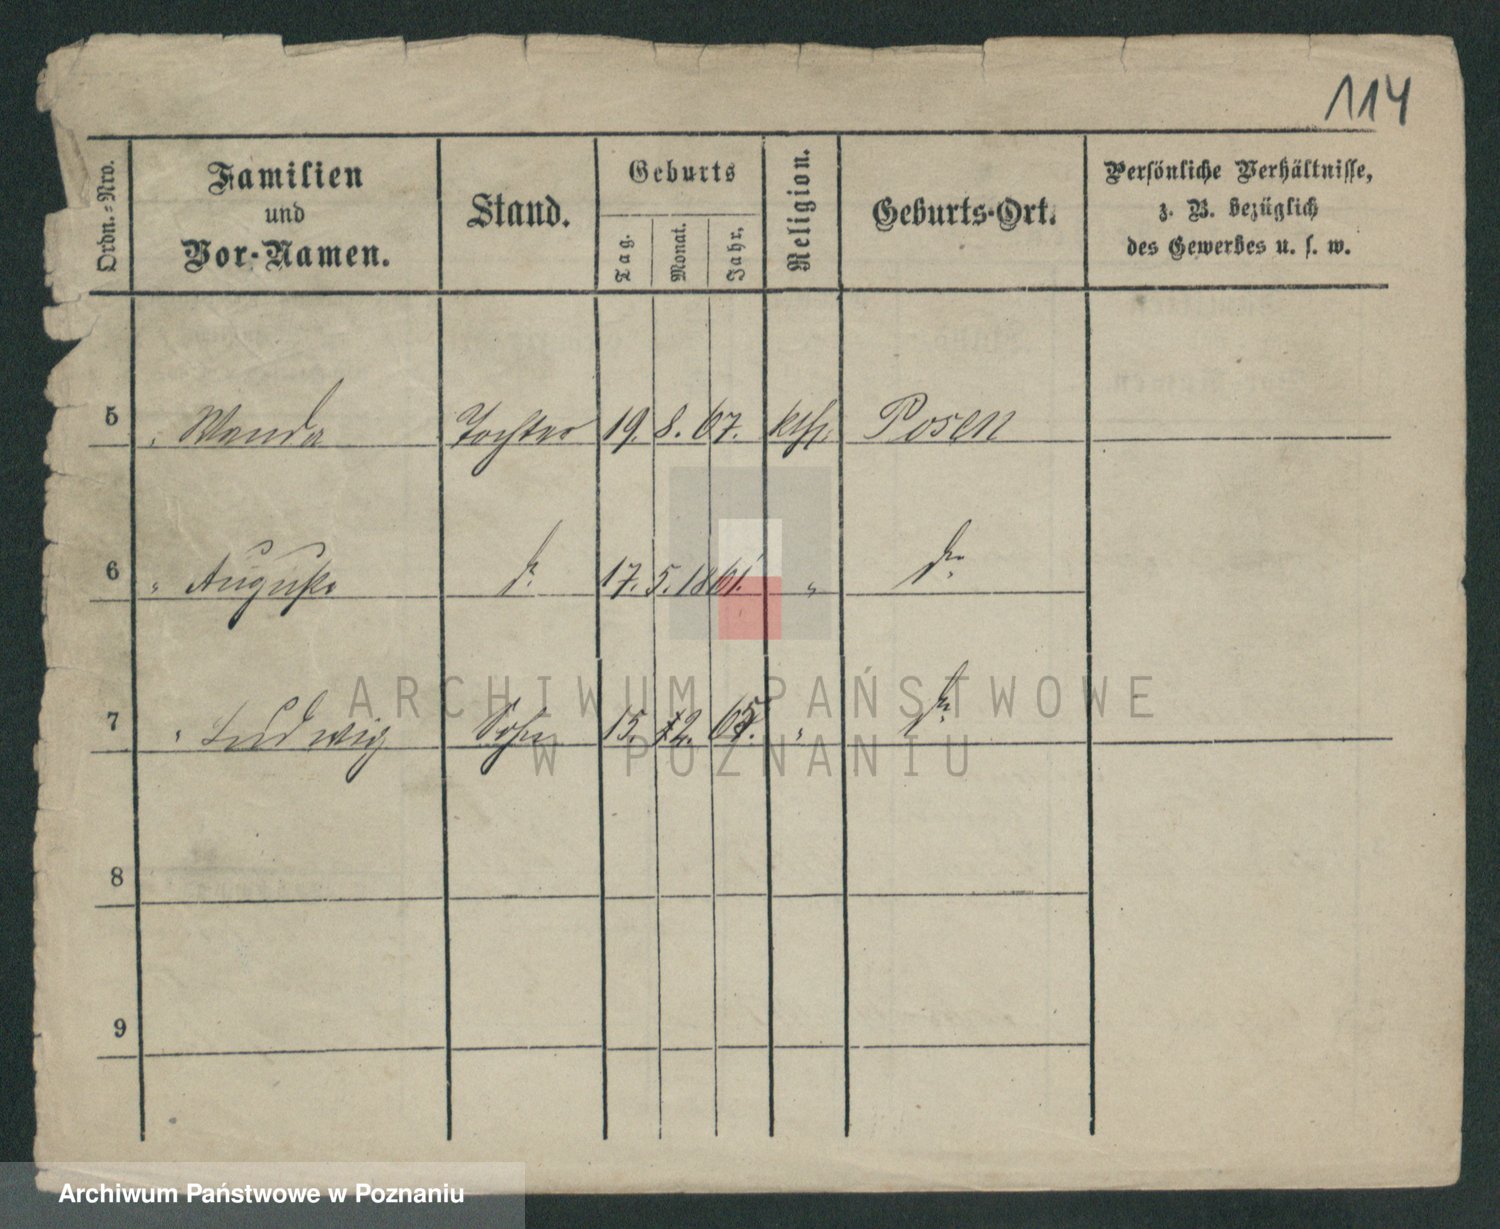 114
Ordn.-Nro.
Familien
und
Vor-Namen.
Stand.
Geburts
Tag.
Monat.
Jahr.
Religion.
Geburts-Ort.
Persönliche Verhältnisse,
z. B. bezüglich
des Gewerbes u. s. w.
5 Wanda Tochter 19. 8. 67. kth. Posen
6 " Auguste do. 17. 5. 1861. " do.
7 " Ludwig Sohn 15. 12. " do.
8
9
ARCHIWUM PAŃSTWOWE
W POZNANIU
Archiwum Państwowe w Poznaniu